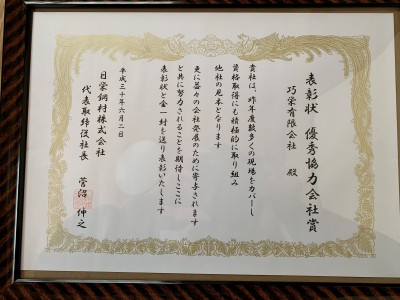 表彰状 優秀協力会社賞
巧栄有限会社 殿
貴社は、昨年度数多くの現場をカバーし
資格取得にも積極的に取り組み
他社の見本となります
更に益々の会社発展のために寄与されます
と共に努力されることを期待しここに
表彰状と金一封を送り表彰いたします
平成三十年六月二日
日栄鋼材株式会社
代表取締役社長 菅沼 伸之